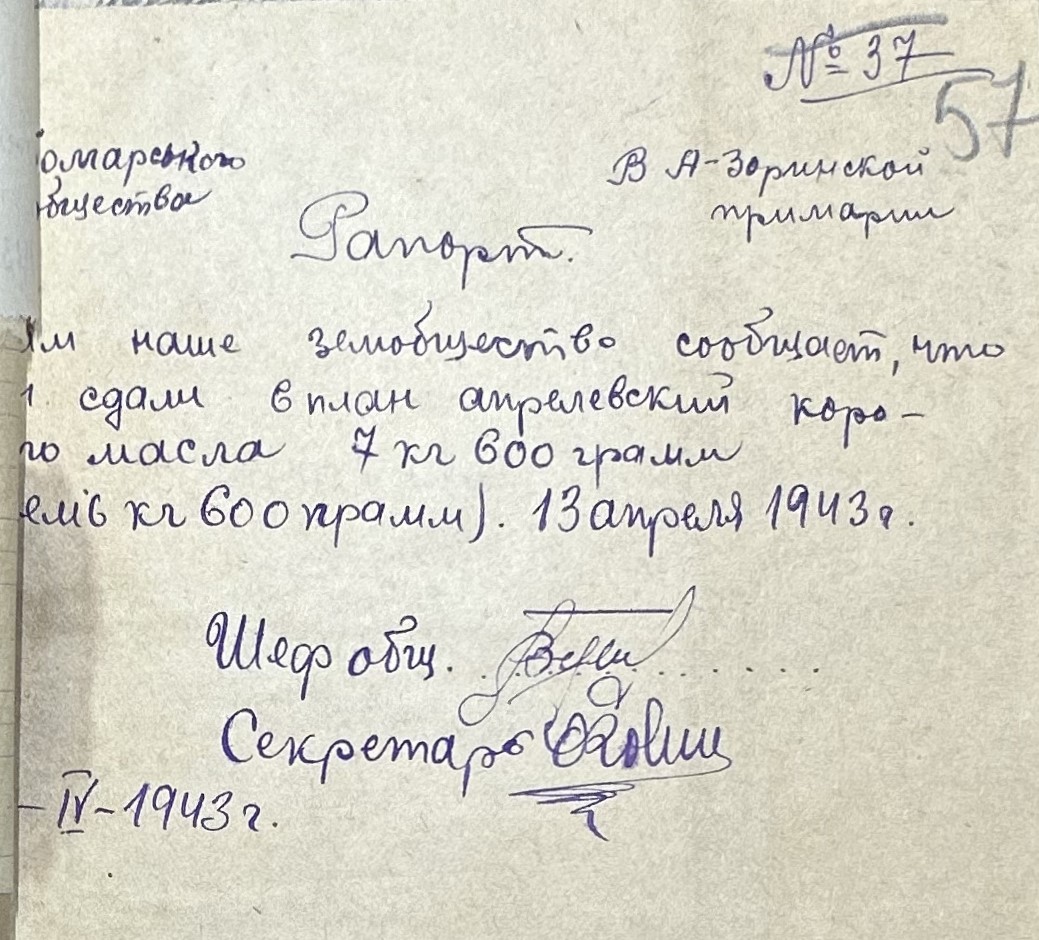 № 37
57
омарського
бщества
В А-Зоринской
примарии
Рапорт.
им наше земобщество сообщает, что
сдали в план апрелевский коро-
го масла 7 кг 600 грамм
ем6 кг 600 грамм). 13 апреля 1943 г.
Шеф общ.
Секретарь
- IV - 1943 г.